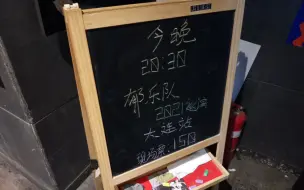 今晚
20:30
郁乐队
2021巡演
大连站
现场票:150